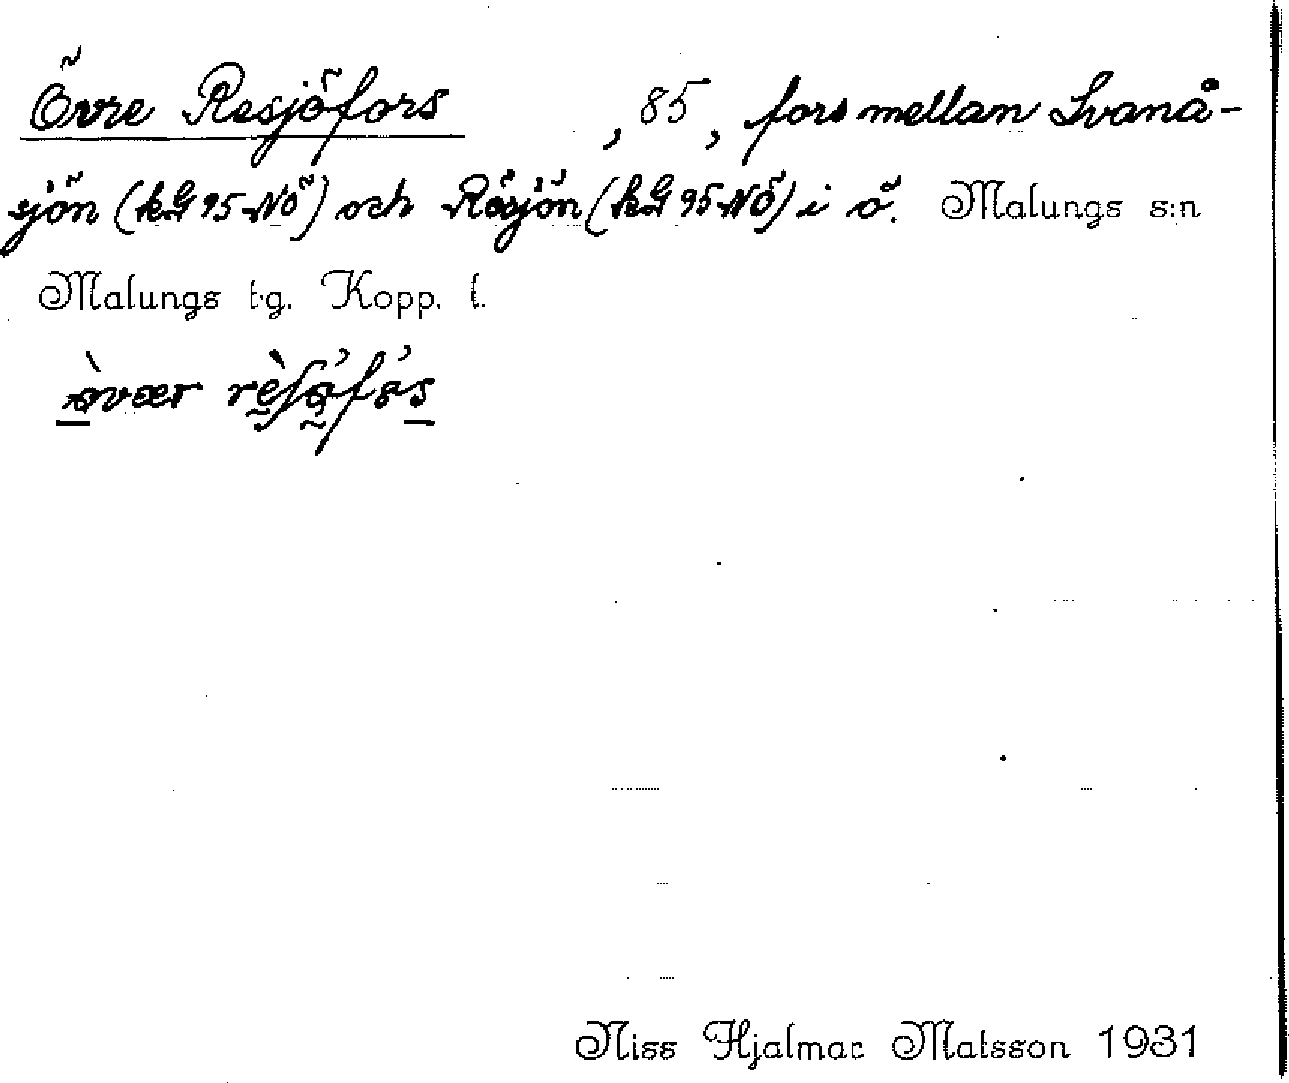 Övre Resjöfors , 85, fors mellan Svanå-
sjön (kG 95 NÖ) och Rösjön (kG 95 NÖ) i ö. Malungs s:n
Malungs t.g. Kopp. l.
Niss Hjalmar Matsson 1931